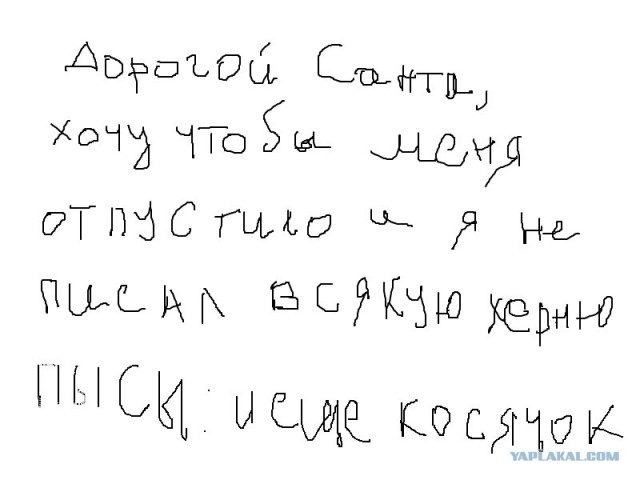 Дорогой Санта,
хочу чтобы меня
отпустило и я не
писал всякую херню
ПЫСЫ: и еще косячок
YAPLAKAL.COM